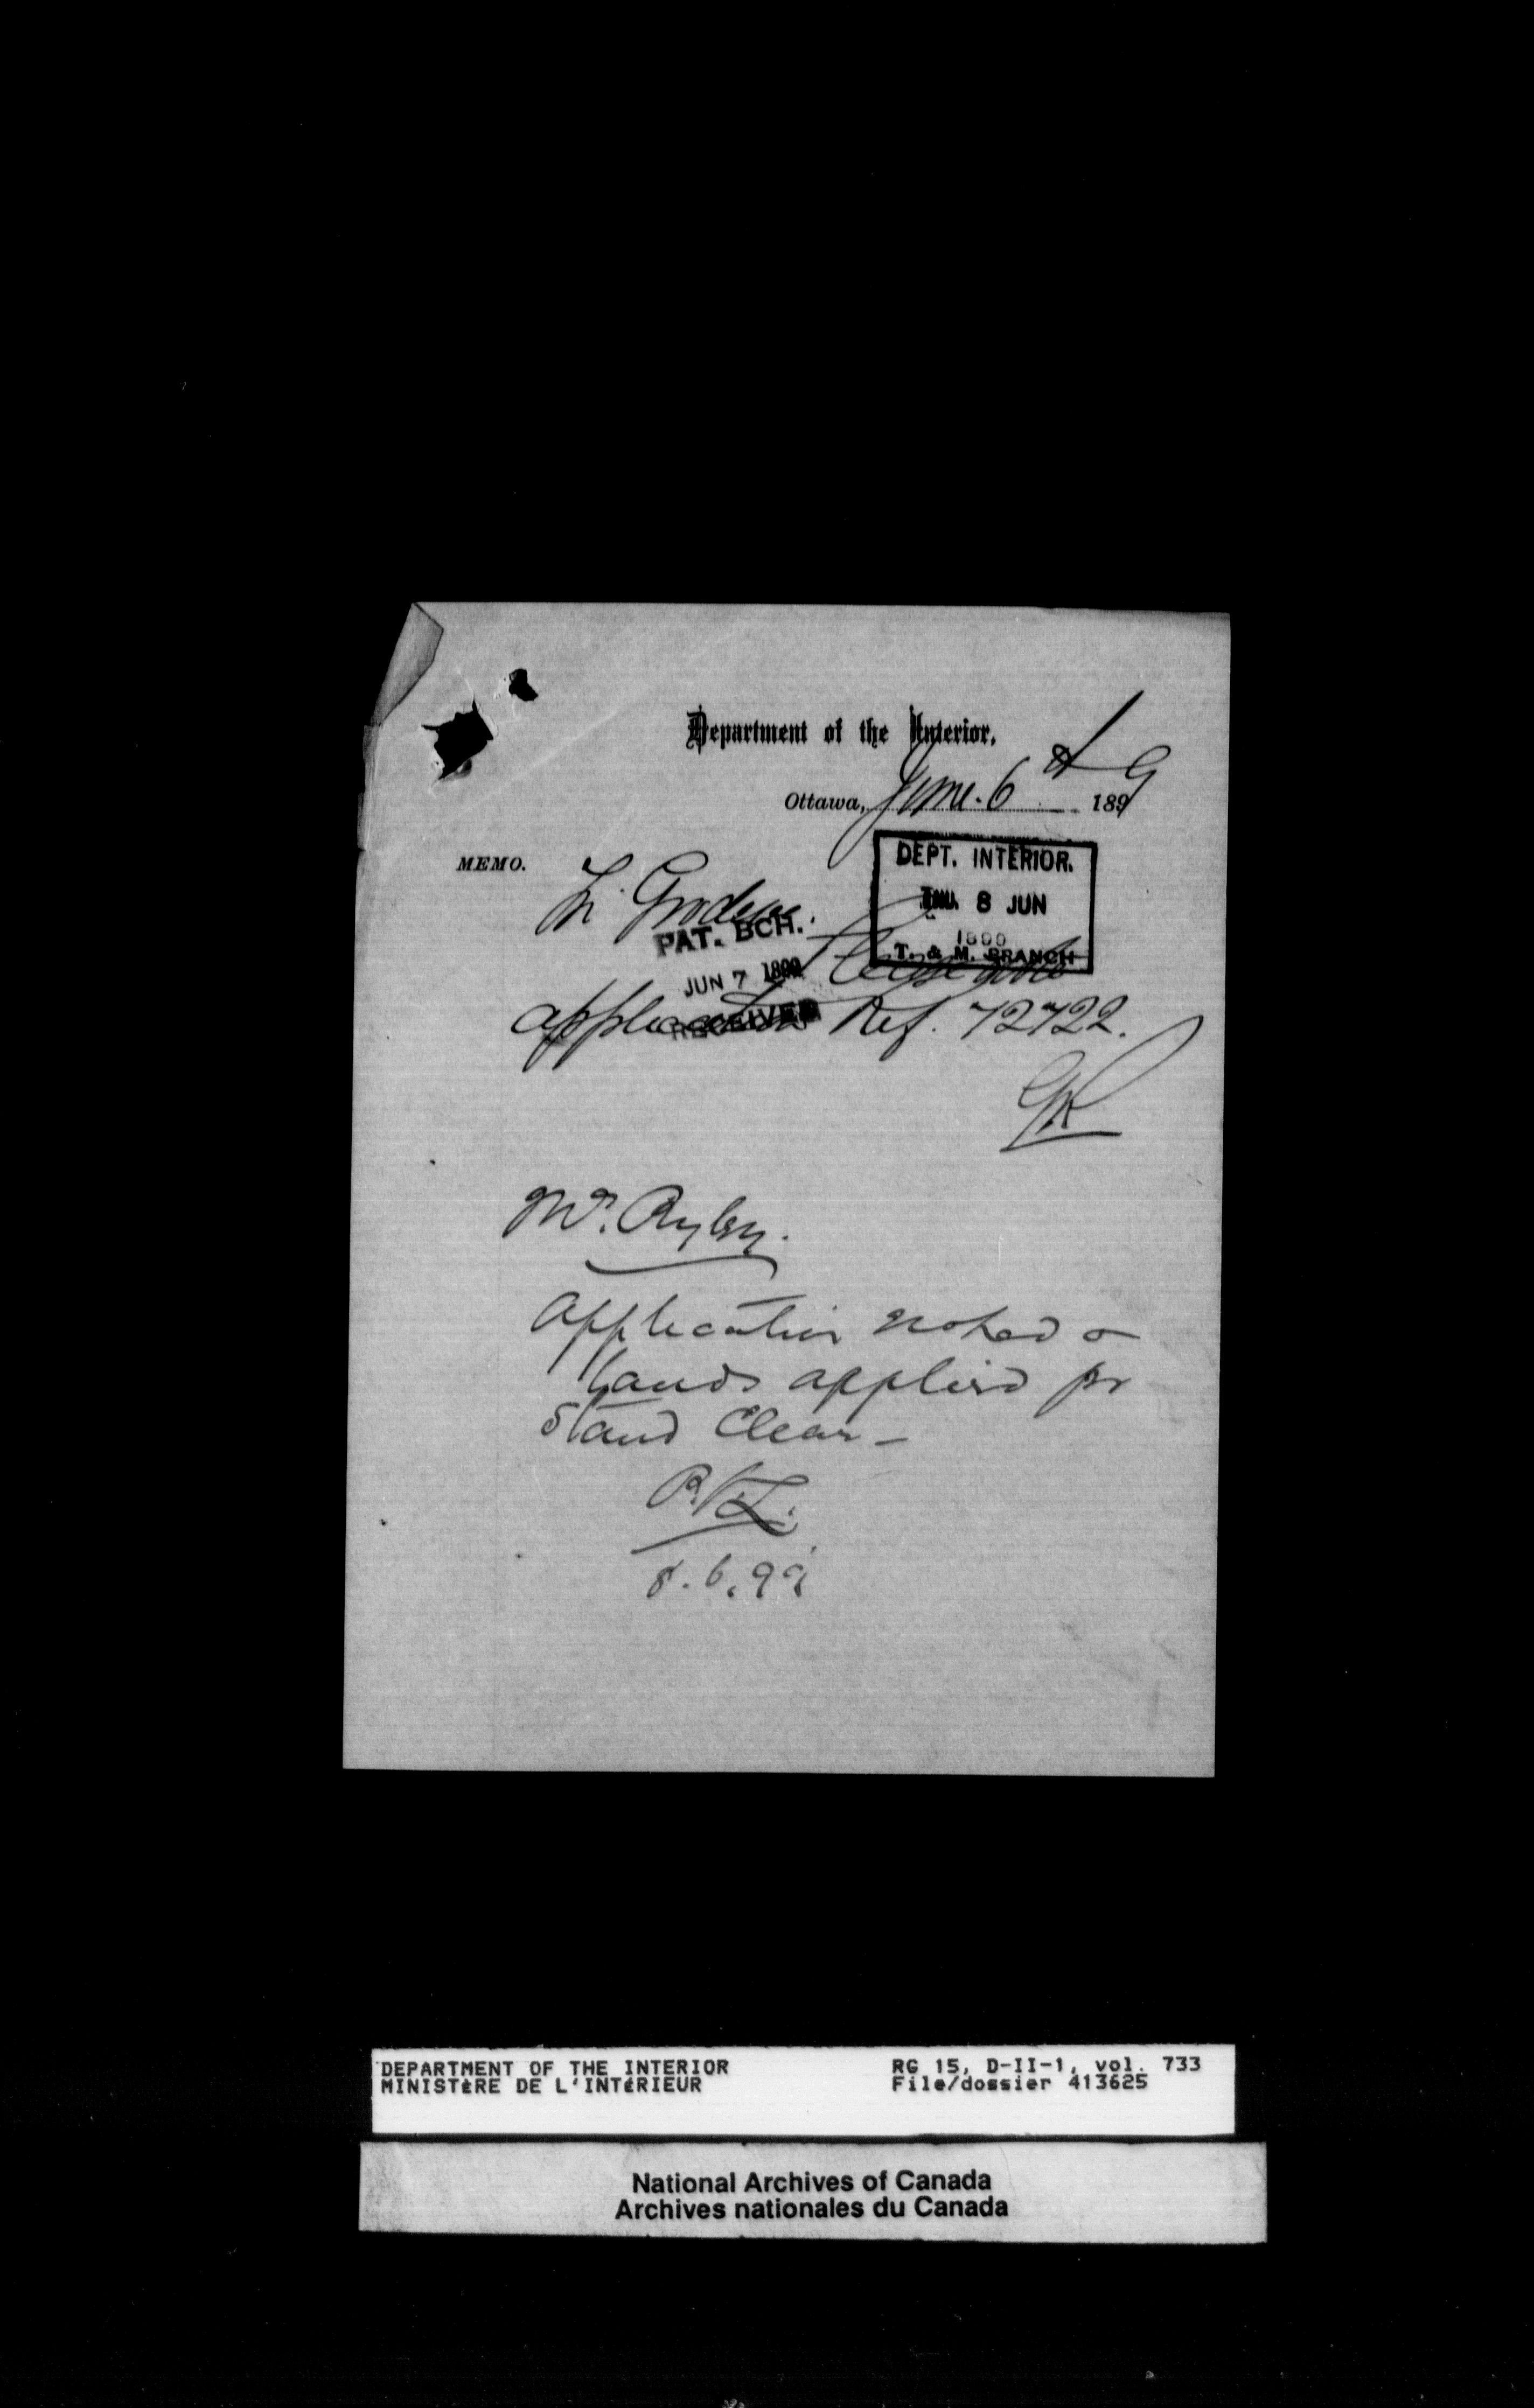 Department of the Interior.
Ottawa, June. 6th 1899
MEMO.
DEPT. INTERIOR.
8 JUN
T. & M. BRANCH
PAT. BCH.
JUN 7
RECEIVED
Please note
application Ref. 72722.
GR
Mr.
Application noted &
lands applied for
Stand Clear -
8.6.99
DEPARTMENT OF THE INTERIOR
MINISTèRE DE L'INTéRIEUR
RG 15, D-II-1, vol. 733
File/dossier 413625
National Archives of Canada
Archives nationales du Canada